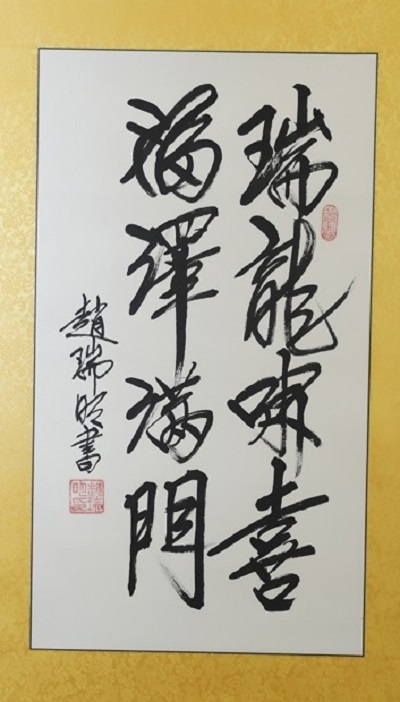 瑞龍啸喜
福澤满門
趙瑞明書